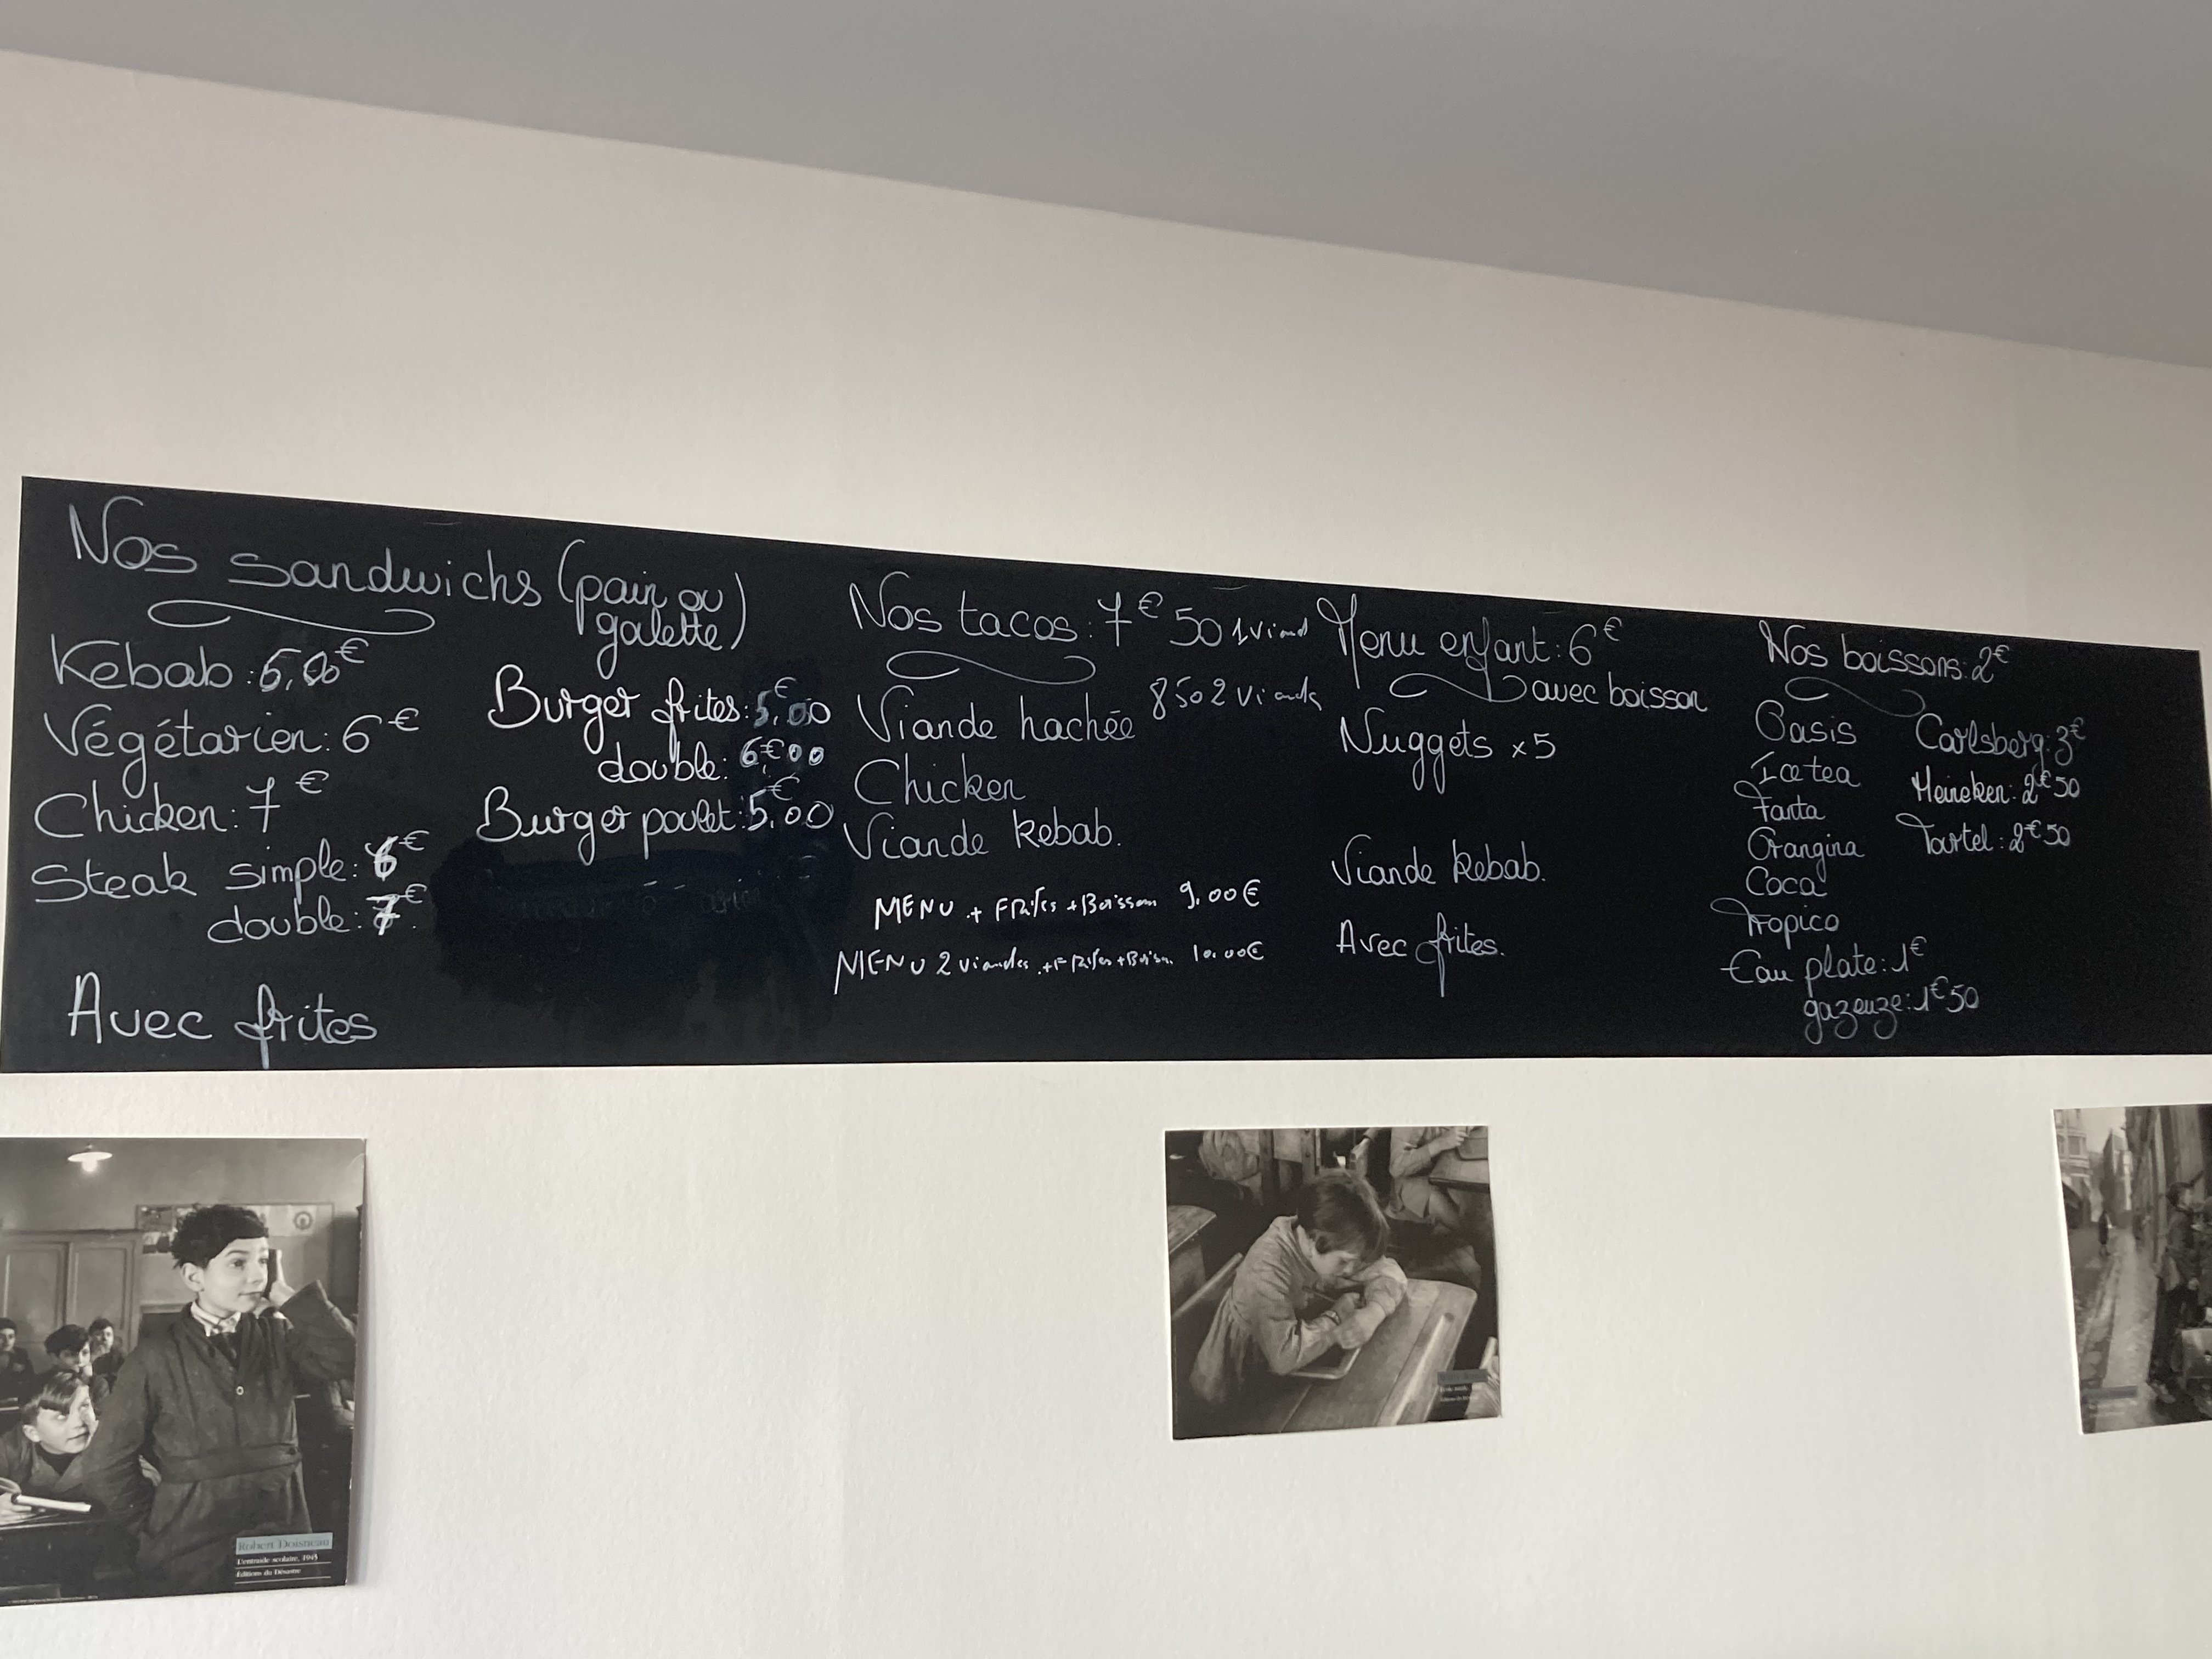 Nos sandwichs (pain ou
galette)
Kebab : 5,00€
Végétarien : 6€
Chicken : 7€
Steak simple : 6€
double : 7€.
Avec frites
Burger frites : 5,€00
double : 6,€00
Burger poulet : 5,€00
Nos tacos : 7€50 1 viand
8 50 2 viands
Viande hachée
Chicken
Viande kebab.
MENU + FRites + Boisson 9,00€
MENU 2 viandes + FRites + Boisson 10,00€
Menu enfant : 6€
avec boisson
Nuggets x5
Viande kebab.
Avec frites.
Nos boissons : 2€
Oasis
Ice tea
Fanta
Orangina
Coca
Tropico
Eau plate : 1€
gazeuze : 1€50
Carlsberg : 3€
Heineken : 2€50
Tourtel : 2€50
Robert Doisneau
L'entraide scolaire, 1945
Éditions du Désastre